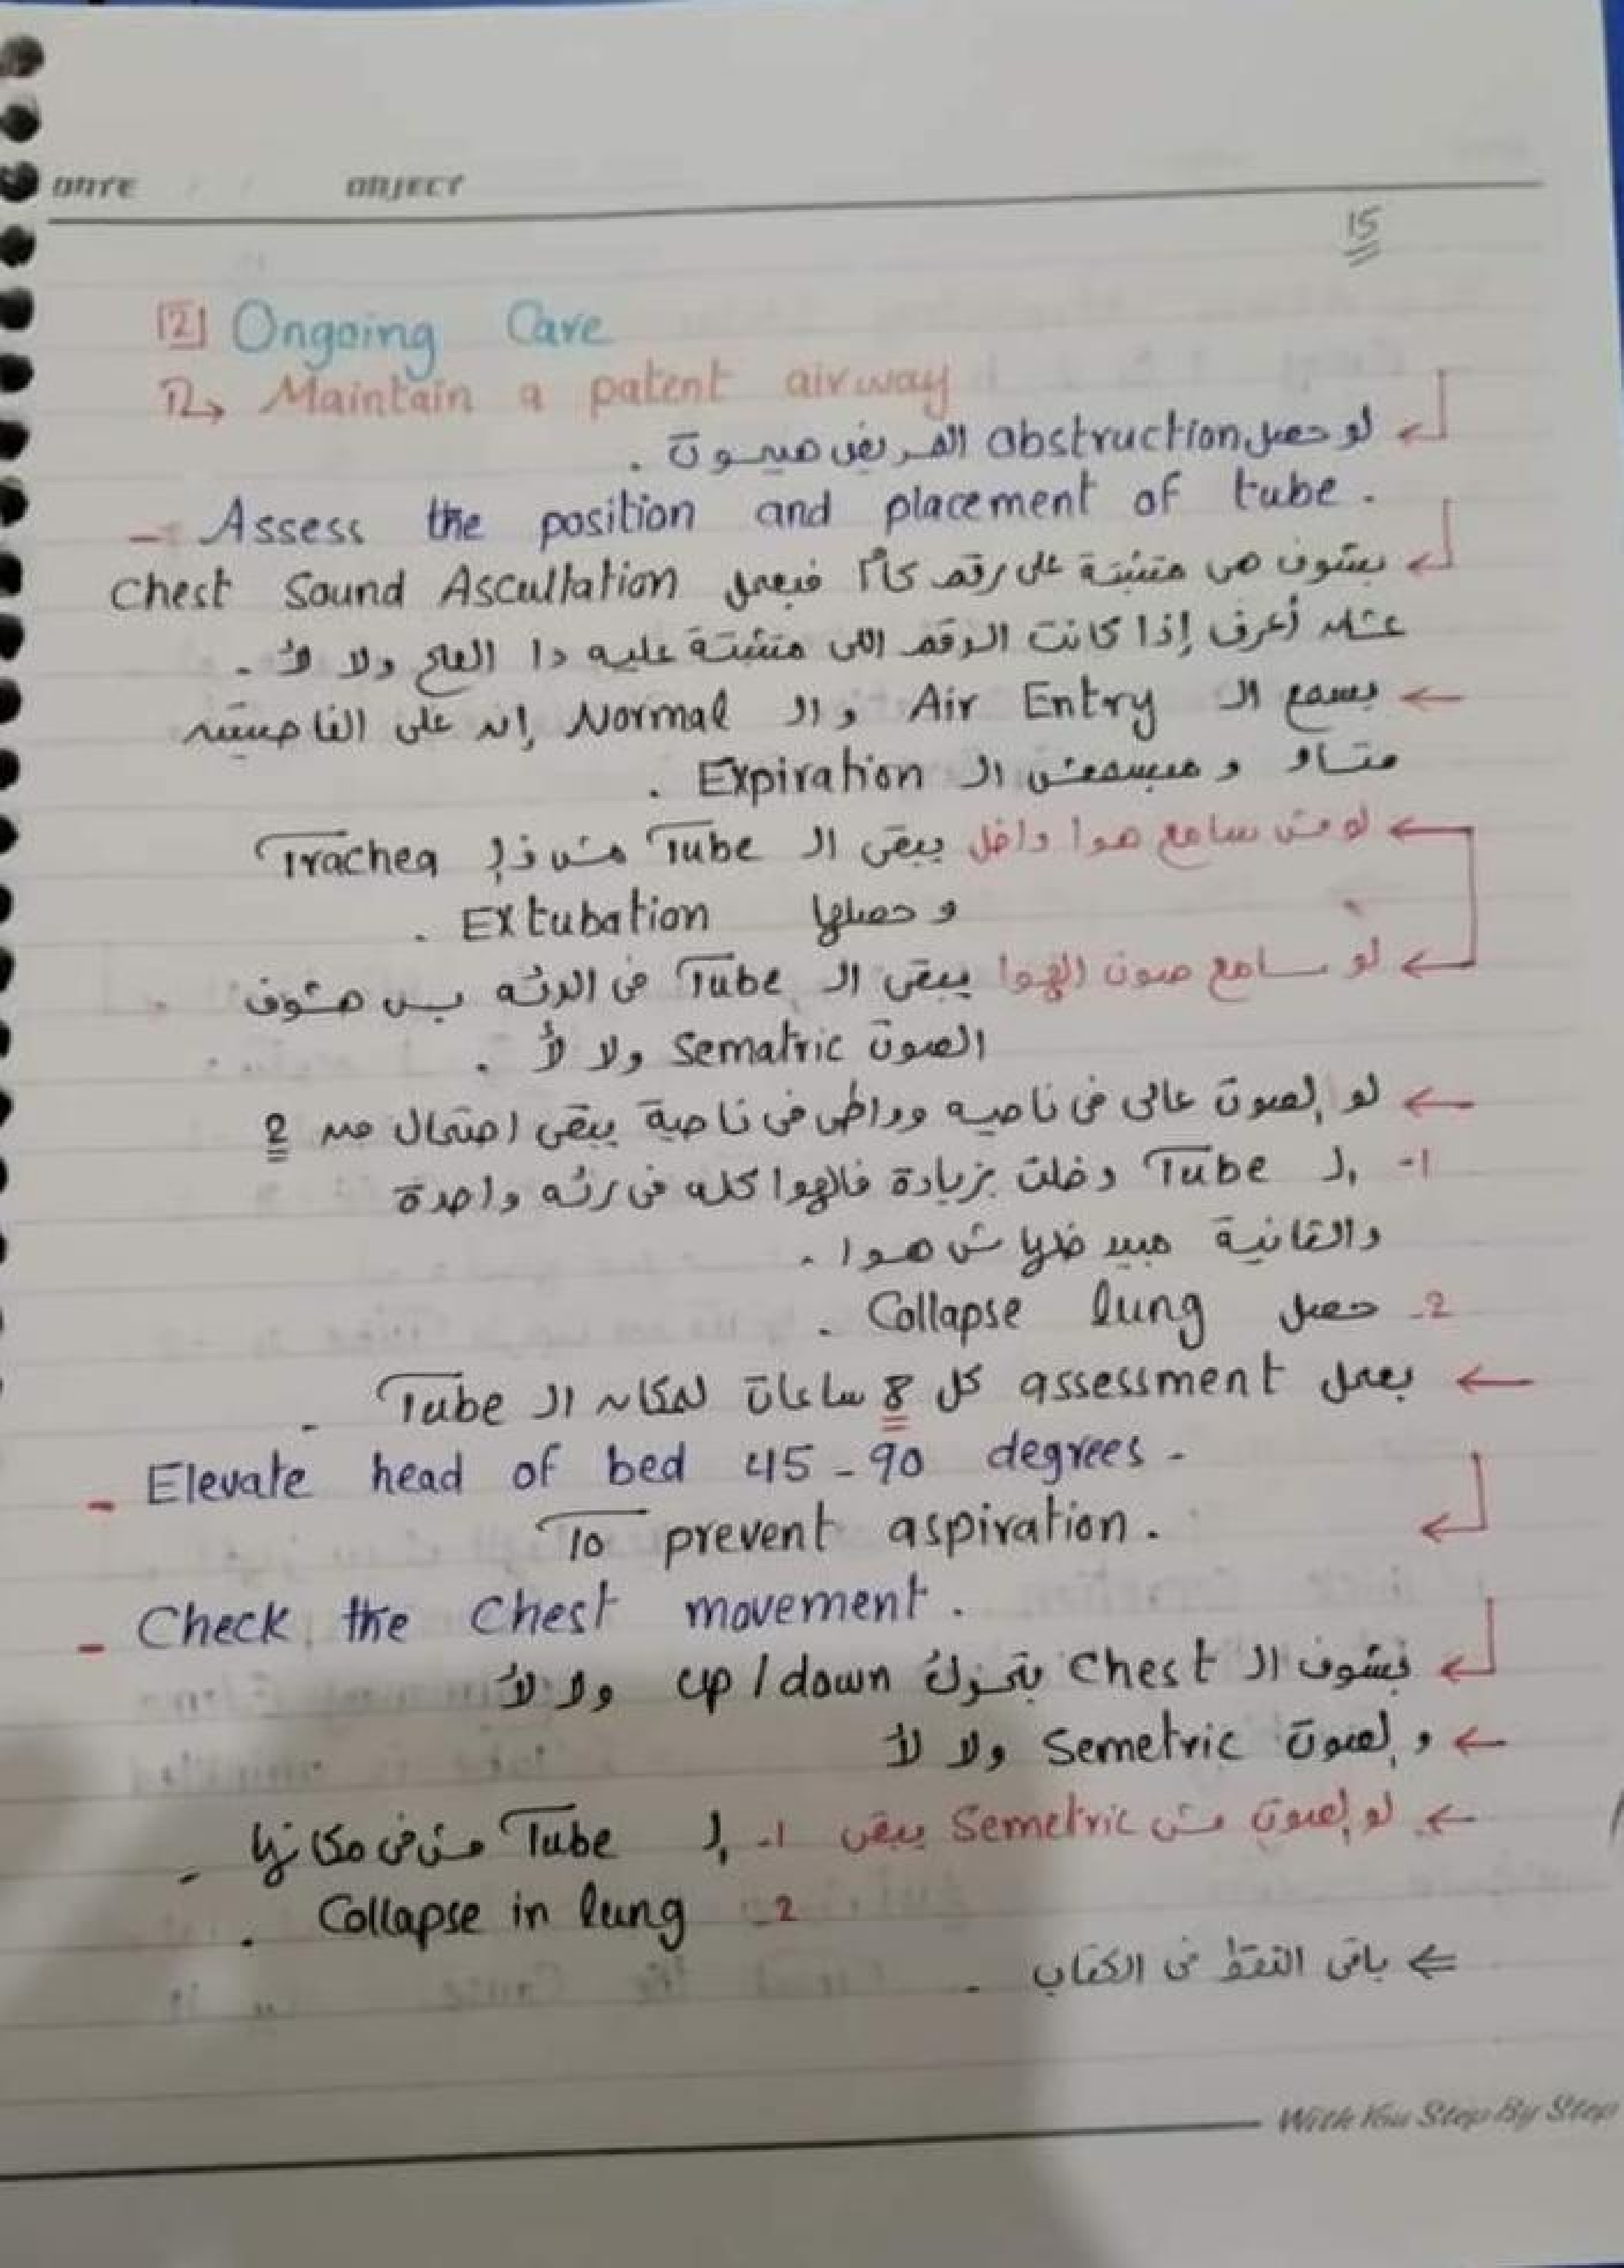 DATE / / OBJECT
15
[2] Ongoing Care
1 Maintain a patent airway
لو حصل obstruction المريض هيموت .
- Assess the position and placement of tube .
بشوف هي متثبتة على رقم كام فبعمل Chest Sound Ascultation
عشان أعرف إذا كانت الرقم اللي متثبتة عليه دا الصح ولا لأ .
← بسمع الـ Air Entry و الـ Normal إن على الناحيتين
متساو و مبسمعش الـ Expiration .
← لو مش سامع هوا داخل يبقى الـ Tube مش في الـ Trachea
و حصلها Extubation .
← لو سامع صوت الهوا يبقى الـ Tube في الرئه بس هشوف
الصوت Sematric ولا لأ .
← لو الصوت عالي في ناحيه وواطي في ناحية يبقى احتمال من 2
1- الـ Tube دخلت بزيادة فالهوا كله في رئه واحدة
والتانية مبيدخلهاش هوا .
2- حصل Collapse lung .
← بعمل assessment كل 8 ساعات لمكان الـ Tube .
- Elevate head of bed 45-90 degrees .
To prevent aspiration .
- Check the Chest movement .
بشوف الـ Chest بتحرك up/down ولا لأ
← و الصوت Semetric ولا لأ
← لو الصوت مش Semetric يبقى 1- الـ Tube مش في مكانها .
2- Collapse in lung .
⇐ باقي النقط في الكتاب .
With You Step By Step